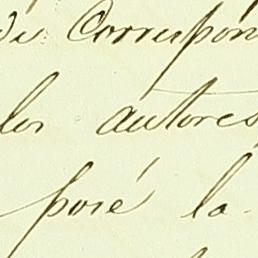 de Correspon
los autores
posé la